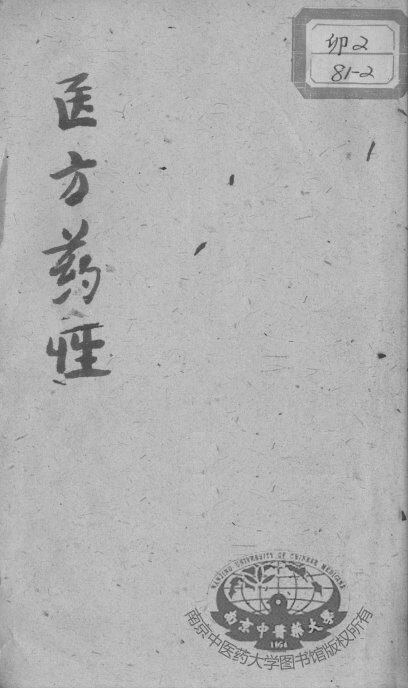 卯2
81-2
医方药性
NANJING UNIVERSITY OF CHINESE MEDICINE
南京中医药大学
1954
南京中医药大学图书馆版权所有